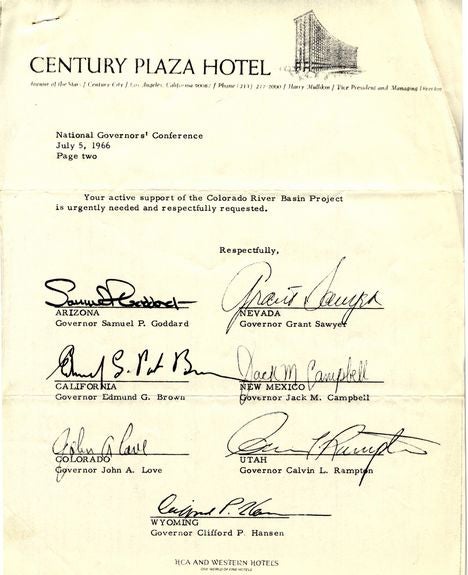 CENTURY PLAZA HOTEL
Avenue of the Stars / Century City / Los Angeles, California 90067 / Phone (213) 277-2000 / Harry Mullikin / Vice President and Managing Director
National Governors' Conference
July 5, 1966
Page two
Your active support of the Colorado River Basin Project
is urgently needed and respectfully requested.
Respectfully,
Samuel P. Goddard
ARIZONA
Governor Samuel P. Goddard
Grant Sawyer
NEVADA
Governor Grant Sawyer
Edmund G. Pat Brown
CALIFORNIA
Governor Edmund G. Brown
Jack M Campbell
NEW MEXICO
Governor Jack M. Campbell
John A Love
COLORADO
Governor John A. Love
Calvin L Rampton
UTAH
Governor Calvin L. Rampton
Clifford P. Hansen
WYOMING
Governor Clifford P. Hansen
HCA AND WESTERN HOTELS
ONE WORLD OF FINE HOTELS